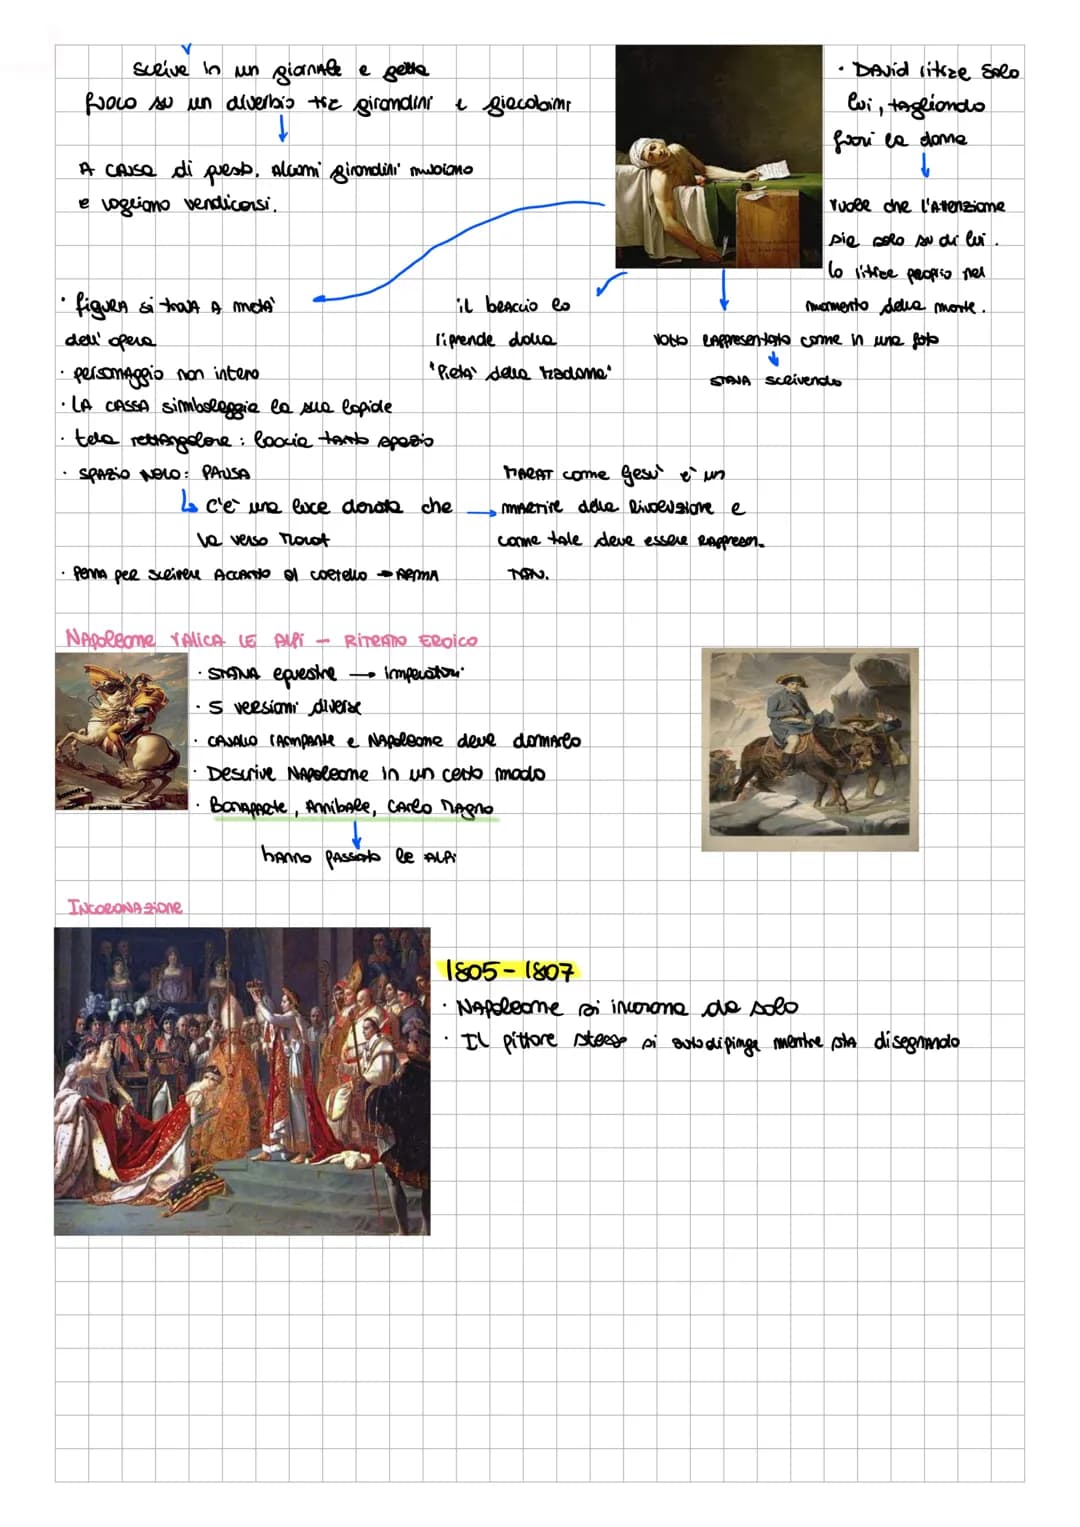 scrive in un giornale e getta
fuoco su un diverbio tra girondini e giacobini
A causa di questo, alcuni girondini mubiano
e vogliono vendicarsi.
· David ritrae solo
lui, tagliando
fuori la donna
vuole che l'attenzione
sia solo su di lui.
lo ritrae proprio nel
momento della morte.
· figura si trova a metà
dell'opera
· personaggio non intero
· La cassa simboleggia la sua lapide
· tela rettangolare: lascia tanto spazio
· spazio nero: pausa
c'è una luce dorata che
va verso Marat
· penna per scrivere accanto al coltello → arma
il braccio lo
riprende dalla
"Pietà della Madonna"
volto rappresentato come in una foto
stava scrivendo
Marat come Gesù è un
martire della Rivoluzione e
come tale deve essere rappresen.
tato.
Napoleone valica le Alpi - Ritratto eroico
· statua equestre → imperatori
· 5 versioni diverse
· cavallo rampante e Napoleone deve domarlo
· Descrive Napoleone in un certo modo
· Bonaparte, Annibale, Carlo Magno
hanno passato le Alpi
Incoronazione
1805-1807
· Napoleone si incorona da solo
· Il pittore stesso si autodipinge mentre sta disegnando